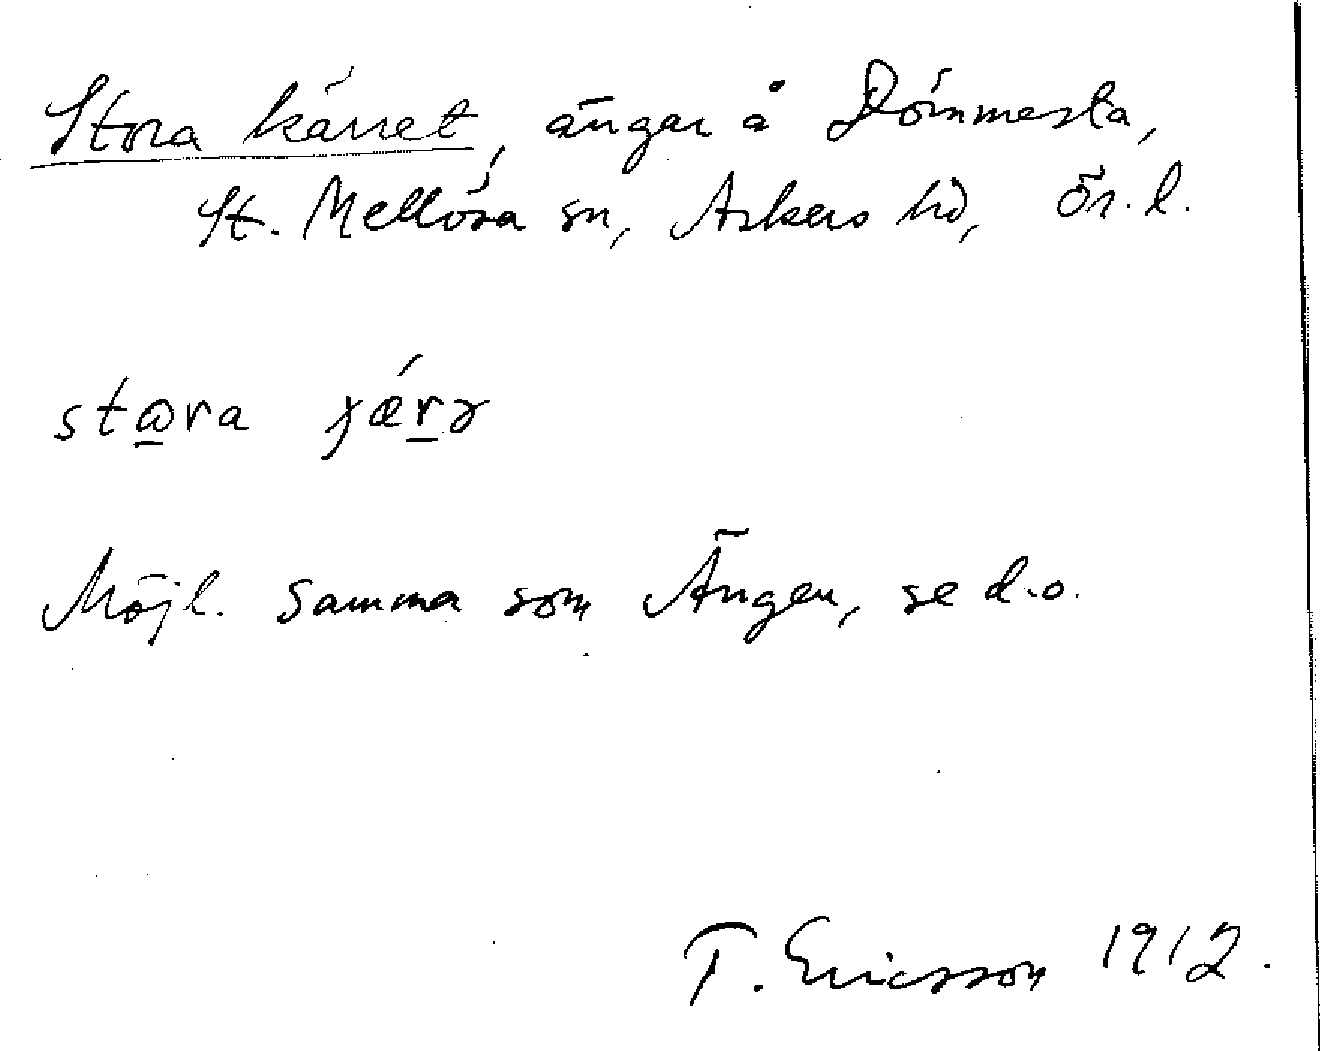 Stora kärret, ängar å Dömmesta,
St. Mellösa sn, Askers hd, Ör. l.
stɷra ɟǽrə
Möjl. samma som Ängen, se d.o.
T. Ericsson 1912.